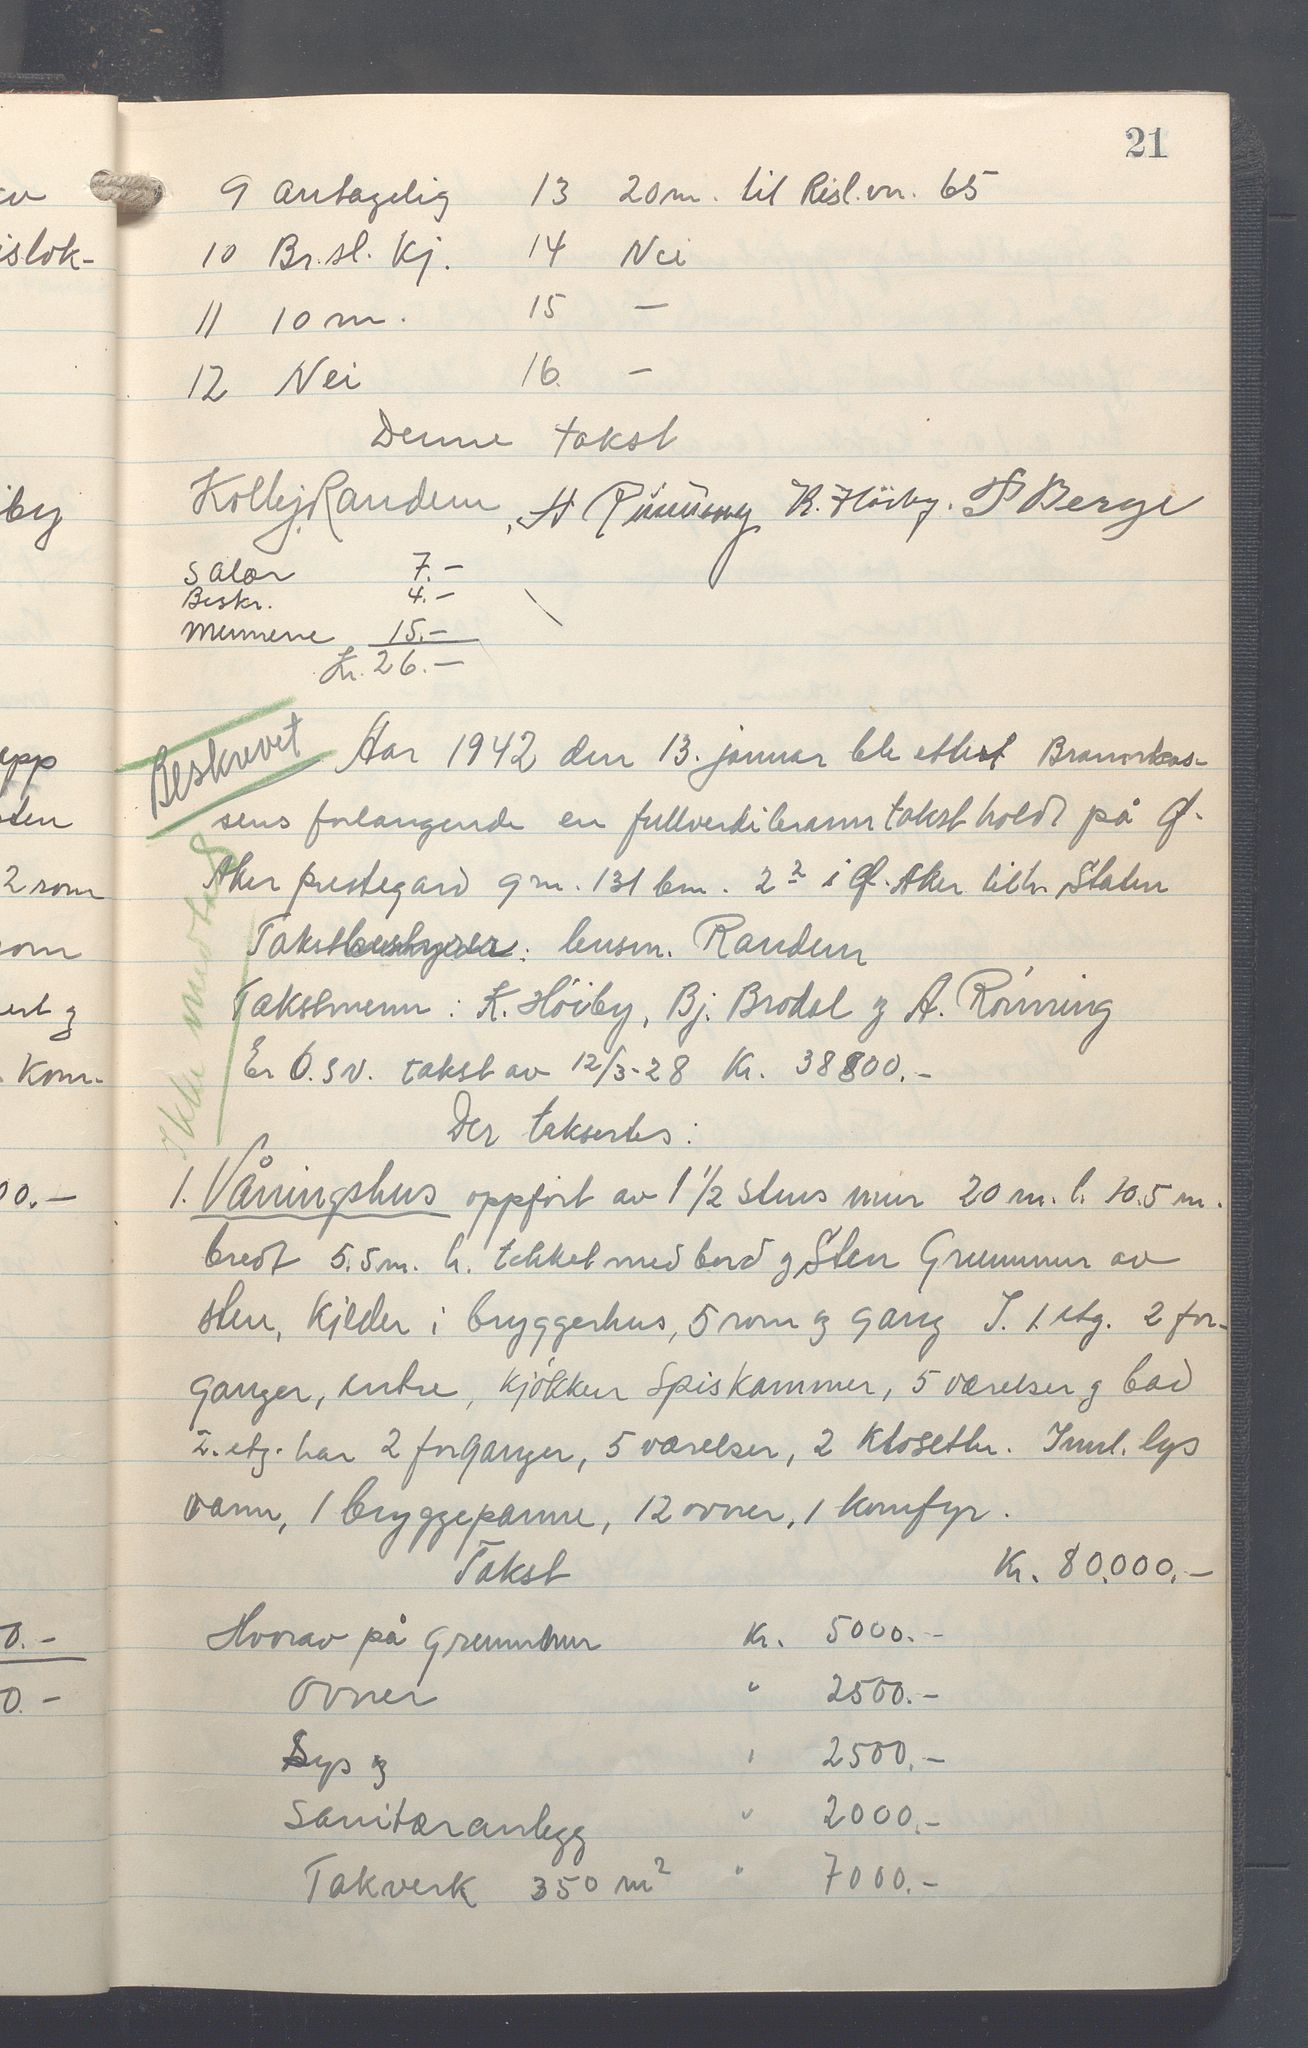 21
9 antagelig 13 20 m. til Risl.vn. 65
10 Br.sl. Kj. 14 Nei
11 10 m. 15 —
12 Nei 16 —
Denne takst
Kolbj. Randem A Rönning K. Höiby. P Berge
Salær 7.-
Beskr. 4.-
Mennene 15.-
Kr. 26.-
Beskrevet
Aar 1942 den 13. januar ble etter Brannkas-
sens forlangende en fullverdibranntakst holdt på Ø.
Aker prestegard gnr. 131 bnr. 2² i Ø. Aker tilh. Staten
Takstbestyrer: lensm. Randem
Takstmenn: K. Höiby, Bj. Brodal g A. Rönning
Er O.S V. takst av 12/3-28 Kr. 38800.-
Der taksertes:
Ikke mottatt
1. Våningshus oppført av 1 1/2 stens mur 20 m. l. 10.5 m.
bredt 5.5 m. h. tekket med bord g Sten Grunnmur av
sten, kjelder i bryggerhus, 5 rom g gang I. 1 etg. 2 for-
ganger, entre, kjökken Spiskammer, 5 værelser g bad
2. etg. har 2 forganger, 5 værelser, 2 klosetter. Innl. lys
vann, 1 bryggepanne, 12 ovner, 1 komfyr.
Takst Kr. 80.000.-
Hvorav på Grunnmur Kr. 5000.-
Ovner " 2500.-
Lys g " 2500.-
Sanitæranlegg " 2000.-
Takverk 350 m² " 7000.-